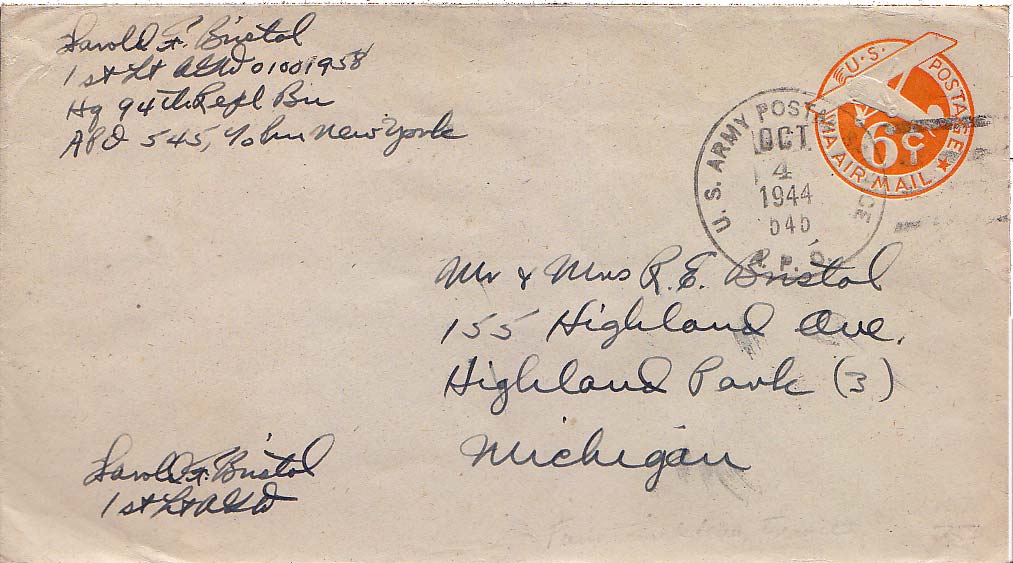 Harold F. Bristol
1st Lt AGD 01001958
Hq 94th Repl Bn
APO 545, % Pm New York
U.S. POSTAGE
VIA AIR MAIL
6¢
U. S. ARMY POSTAL SERVICE
OCT
4
1944
545
A. P. O.
Mr & Mrs R. E. Bristol
155 Highland Ave.
Highland Park (3)
Michigan
Harold F. Bristol
1st Lt AGD